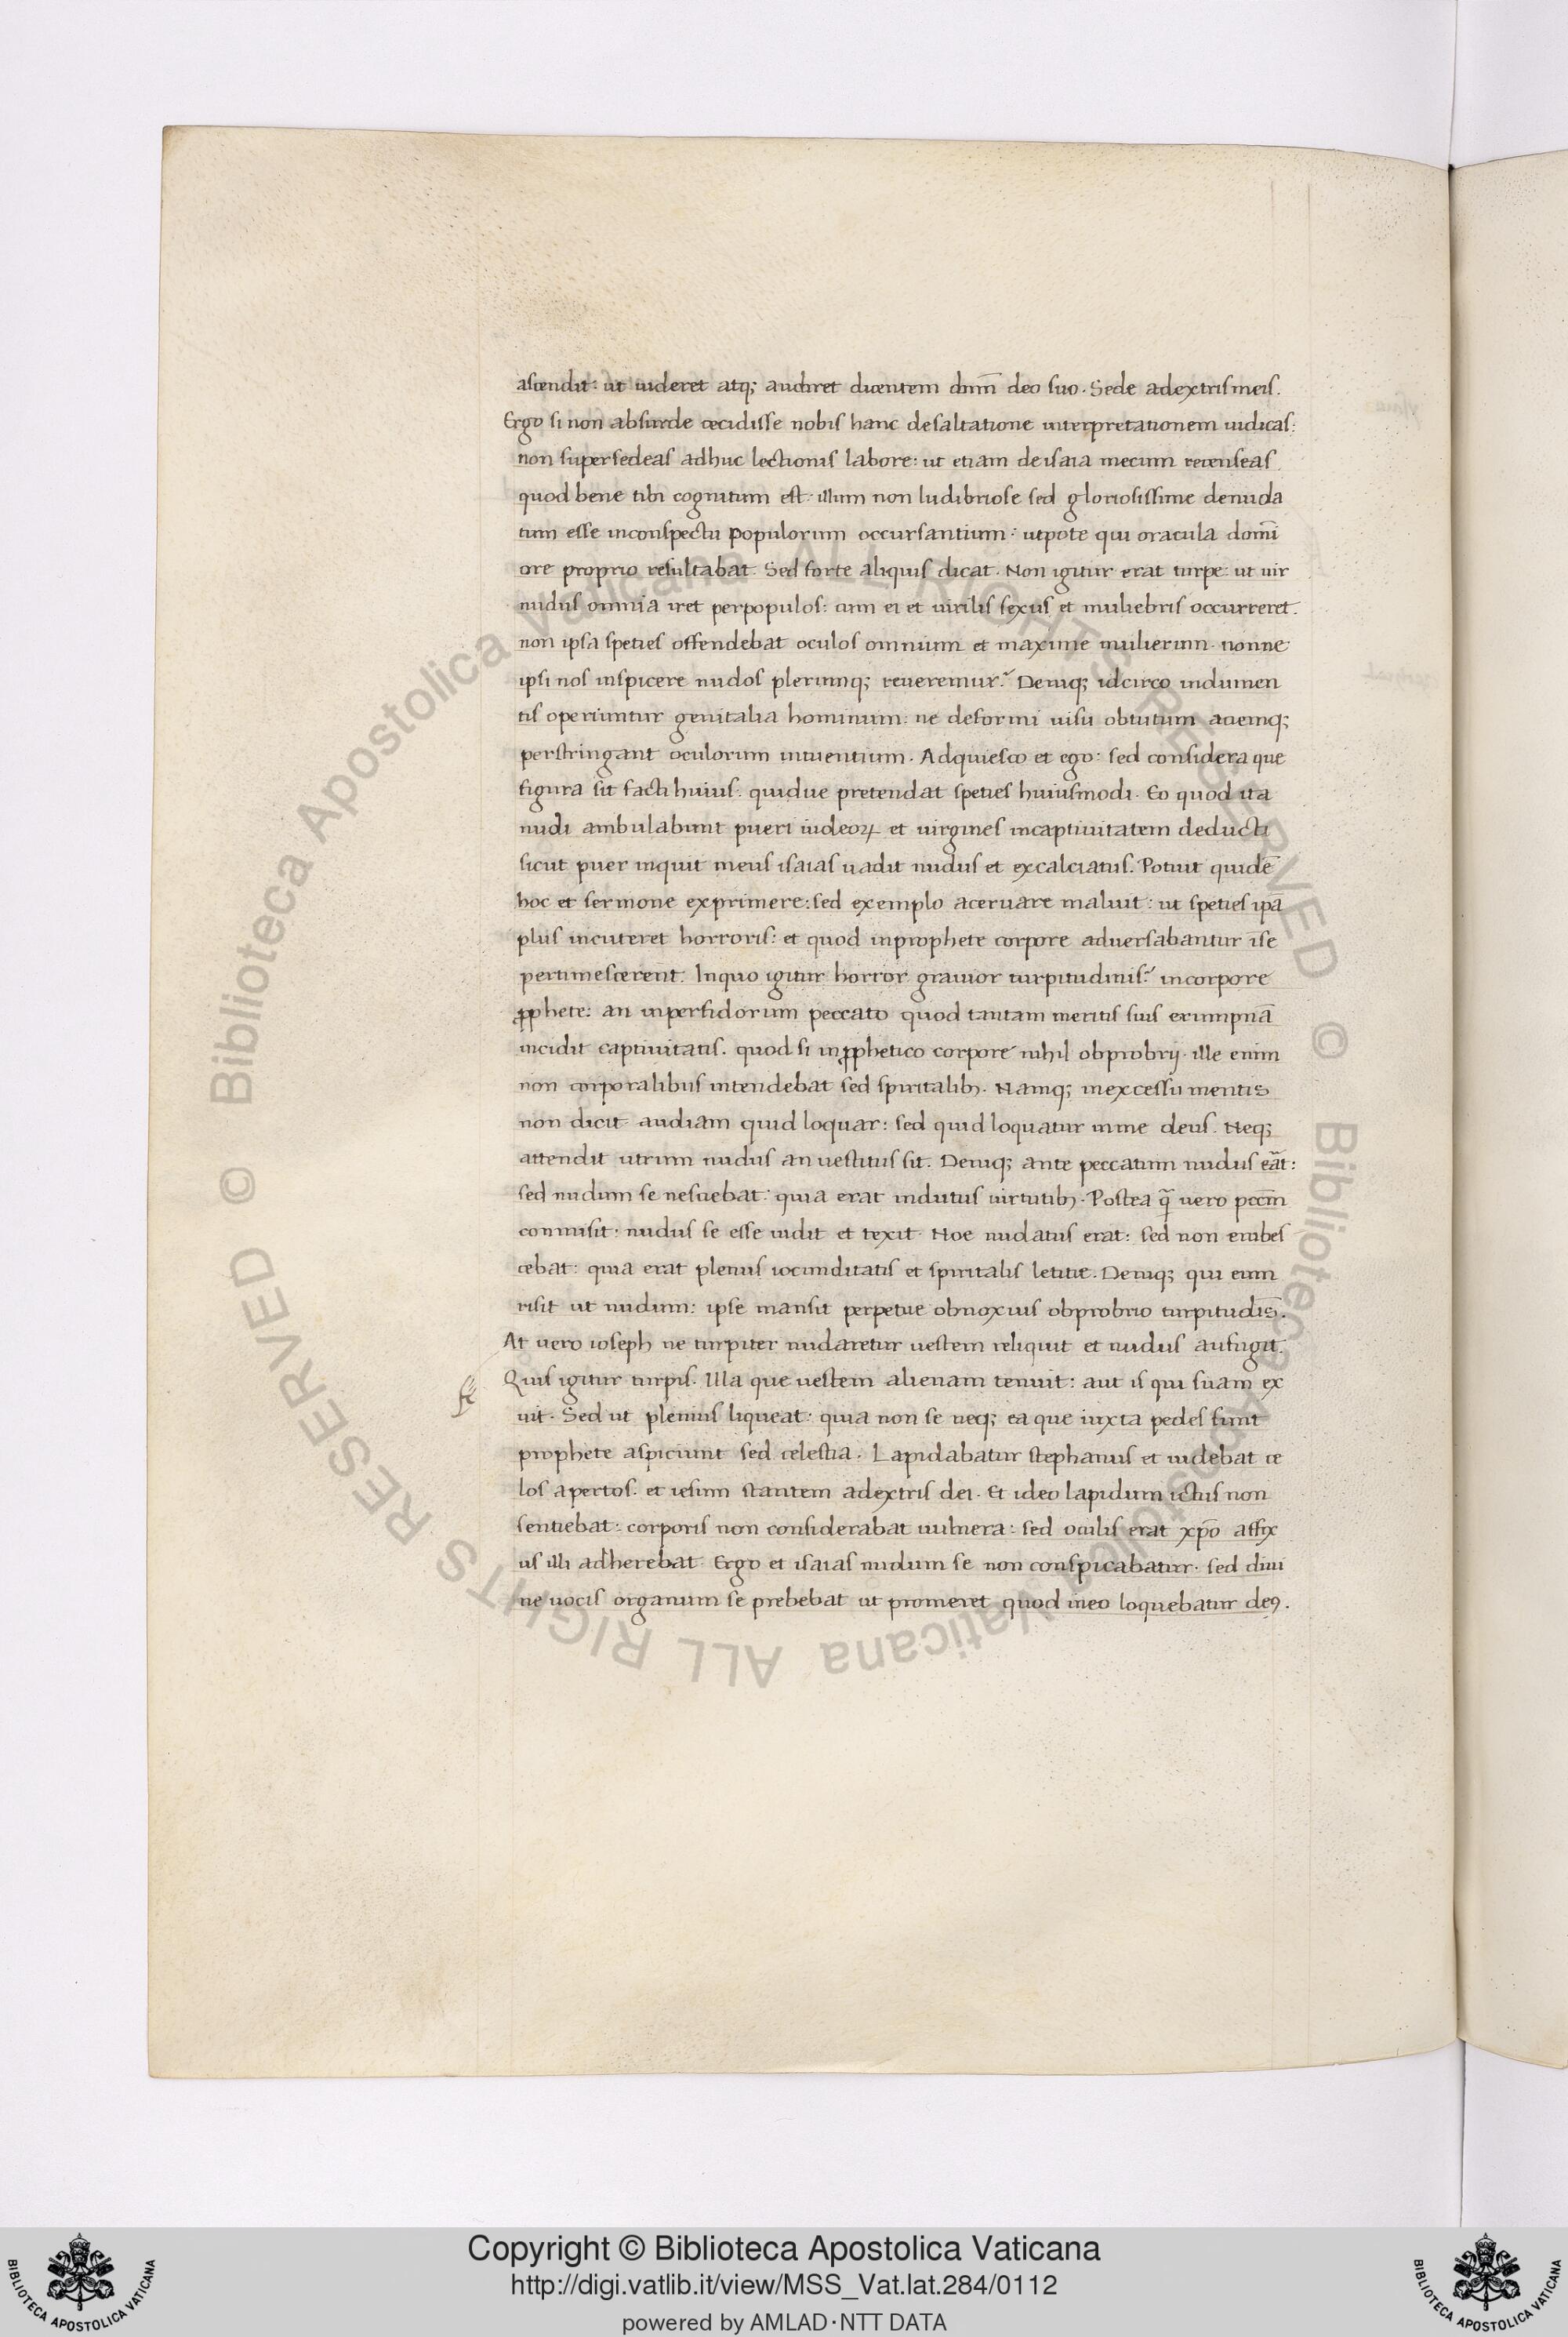 ascendit: ut uideret atq; audiret dicentem dnm̄ deo suo. Sede adextris meis.
Ergo si non absurde cecidisse nobis hanc desaltatione interpretationem uidicas:
non supersedeas adhuc lectionis labore: ut etiam deisaia mecum recenseas
quod bene tibi cognitum est. illum non ludibriose sed gloriosissime denuda
tum esse inconspectu populorum occursantium: utpote qui oracula domi̅
ore proprio resultabat. Sed forte aliquis dicat. Non igitur erat turpe: ut uir
nudus omnia iret perpopulos: cum ei et uirilis sexus et muliebris occurreret.
non ipsa speties offendebat oculos omnium et maxime mulierum. nonne
ipsi nos inspicere nudos plerumq; reueremur? Deniq; idcirco indumen
tis operiuntur genitalia hominum: ne deformi uisu obtutum aciemq;
perstringant oculorum intuentium. Adquiesco et ego: sed considera que
figura sit facti huius: quidue pretendat speties huiusmodi. Eo quod ita
nudi ambulabunt pueri iudeoꝝ et uirgines incaptiuitatem deducti
sicut puer inquit meus isaias uadit nudus et excalciatus. Potuit quidē
hoc et sermone exprimere: sed exemplo aceruare maluit: ut speties ipā
plus incuteret horroris: et quod inprophete corpore aduersabantur īse
pertimescerent. Inquo igitur horror grauior turpitudinis? incorpore
ꝓphete: an inperfidorum peccato quod tantam meritis suis erumpnā
incidit captiuitatis. quod si inꝓphetico corpore nihil obprobrij. ille enim
non corporalibus intendebat sed spiritalibꝫ. Namq; inexcessu mentis
non dicit audiam quid loquar: sed quid loquatur inme deus. Neq;
attendit utrum nudus an uestitus sit. Deniq; ante peccatum nudus eāt:
sed nudum se nesuebat: quia erat indutus uirtutibꝫ. Postea q̄ uero pccm̄
commisit: nudus se esse uidit et texit. Noe nudatus erat: sed non erubes
cebat: quia erat plenus iocunditatis et spiritalis letitie. Deniq; qui eum
risit ut nudum: ipse mansit perpetue obnoxius obprobrio turpitudis̄.
At uero ioseph ne turpiter nudaretur uestem reliquit et nudus aufugit.
Quis igitur turpis. Illa que uestem alienam tenuit: aut is qui suam ex
uit. Sed ut plenius liqueat: quia non se neq; ea que iuxta pedes sunt
prophete aspiciunt sed celestia. Lapidabatur stephanus et uidebat ce
los apertos. et iesum stantem adextris dei. Et ideo lapidum ictus non
sentiebat: corporis non considerabat uulnera: sed oculis erat xp̄o affix
us illi adherebat. Ergo et isaias nudum se non conspicabatur. sed diui
ne uocis organum se prebebat ut promeret quod ineo loquebatur deꝯ.
© Biblioteca Apostolica Vaticana ALL RIGHTS RESERVED © Biblioteca Apostolica Vaticana ALL RIGHTS RESERVED
Copyright © Biblioteca Apostolica Vaticana
http://digi.vatlib.it/view/MSS_Vat.lat.284/0112
powered by AMLAD·NTT DATA
BIBLIOTECA APOSTOLICA VATICANA
BIBLIOTECA APOSTOLICA VATICANA